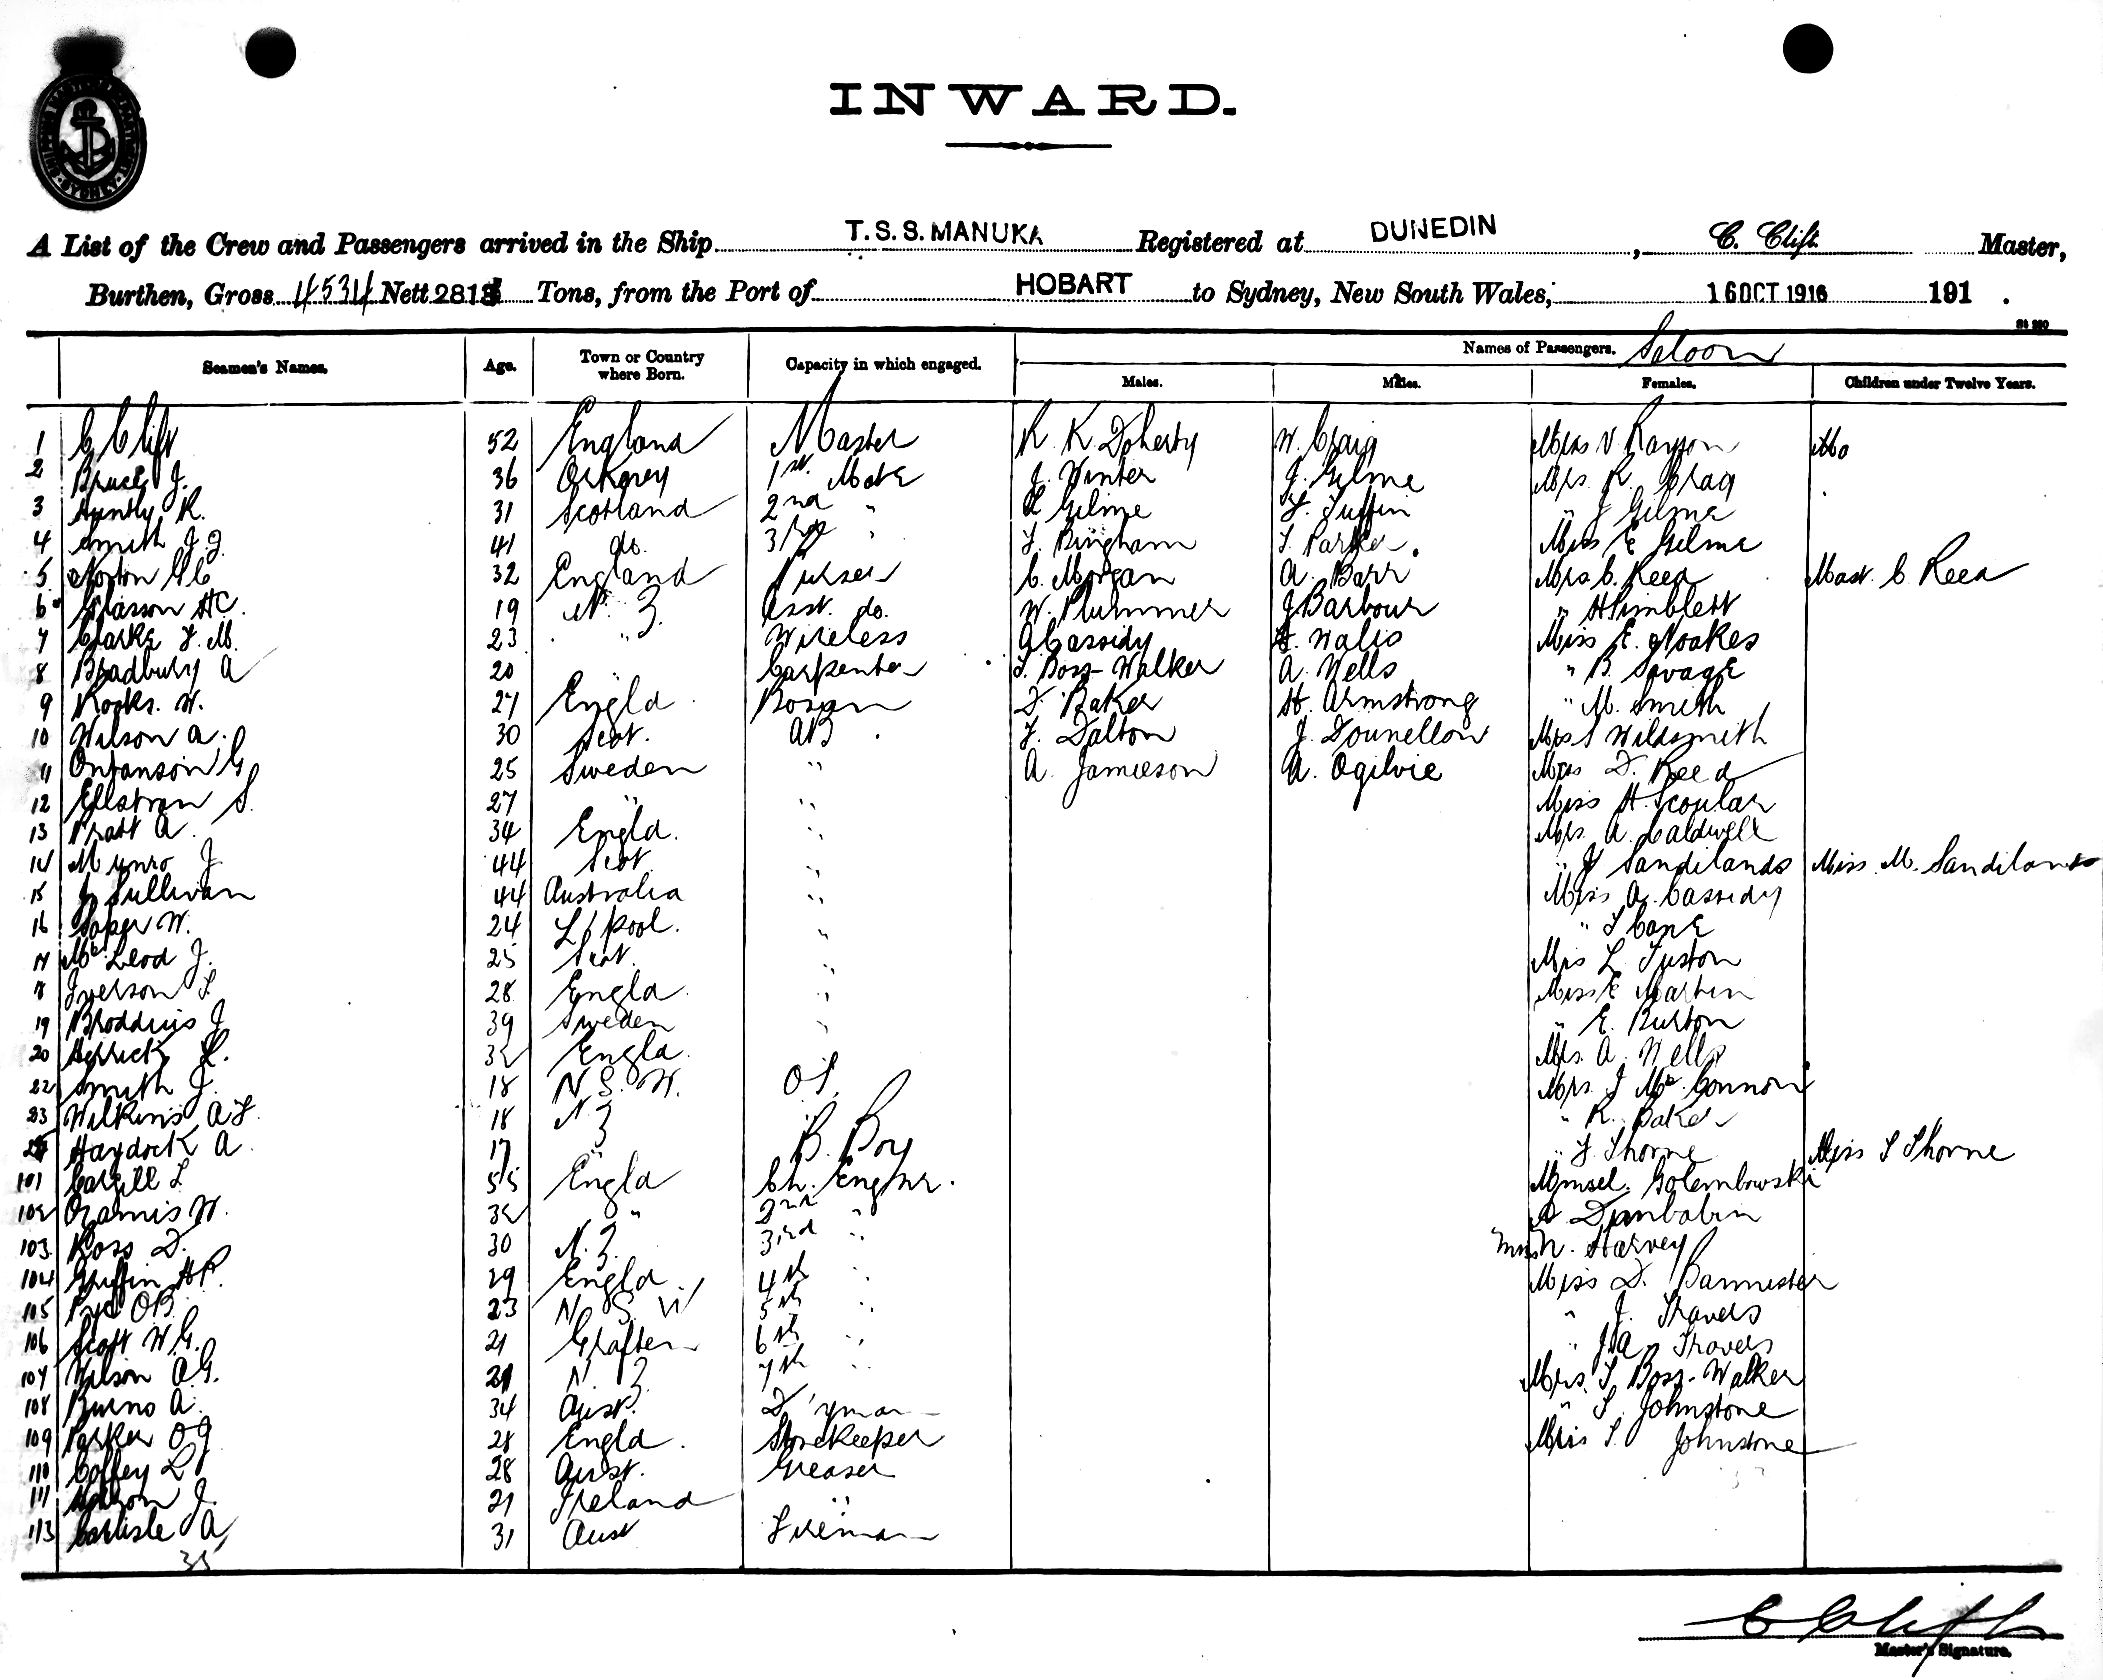 INWARD.
A List of the Crew and Passengers arrived in the Ship T.S.S. MANUKA Registered at DUNEDIN, C. Clift Master,
Burthen, Gross 4534 Nett 2818 Tons, from the Port of HOBART to Sydney, New South Wales, 16 OCT 1916 191 .
Seamen's Names. Age. Town or Country where Born. Capacity in which engaged. Names of Passengers. Saloon
Males. Males. Females. Children under Twelve Years.
1 C Clift 52 England Master R K Doherty W. Craig Mrs V Rayson
2 Bruce J. 36 Orkney 1st. Mate J. Winter J. Gilme Mrs. R. Crag
3 Huntly R. 31 Scotland 2nd " Gilme F. Tuffin " J Gilme
4 Smith J. J. 41 do. 3rd " F. Bingham Parker Miss E Gilme
5 Norton 32 England Purser C. Morgan A. Barr Mrs C. Reed Mast. C Reed
6 Glasson HC. 19 N. Z. Asst. do. W. Plummer J Barbour " H Simblett
7 Clarke F. M. 23 " Wireless A Cassidy Walis Miss E. Noakes
8 Bradbury A 20 Carpenter Boss-Walker A. Wells " B. Savage
9 Rooks. W. 27 Engld. Bosun D. Baker H. Armstrong " M. Smith
10 Wilson A. 30 Scot. AB. F. Dalton J. Dounellon Mrs Wildsmith
11 G 25 Sweden " A. Jamieson A. Ogilvie Mrs D. Reed
12 Ellstrom S. 27 " " Miss H. Scoular
13 Pratt A. 34 Engld. " Mrs. A. Caldwell
14 Munro J. 44 Scot. " " J Sandilands Miss. M. Sandilands
15 J Sullivan 44 Australia " Miss A. Cassidy
16 Soper W. 24 L'pool. " " Cane
17 McLeod J. 25 Scot. " Mrs L. Tuston
8 Iverson 28 Engld. " Miss E Martin
19 Broddius J 39 Sweden " " E. Burton
20 Herrick 32 Engld. Mrs. A. Wells
22 Smith J. 18 N. S. W. OS. Mrs. J McConnon
23 Wilkins A F. 18 N. Z " R. Baker
Haydock A. 17 " B. Boy " F. Thorne Miss Thorne
101 Cargill L 55 Engld Ch. Engnr. Golembowski
102 W. 32 " 2nd " Dunbabin
103. Ross D. 30 N. Z. 3rd " Mrs N. Harvey
104 Griffin H P. 29 Engld. 4th " Miss D. Bannister
105 Pye OB. 23 N. S. W 5th " " J. Travers
106 Scott W G. 21 Grafton 6th " " J A. Travers
107 Wilson A. G. 21 N. Z. 7th " Mrs. Boss-Walker
108 Burns A. 34 Aust. D'kyman " Johnstone
109 Parker O J 28 Engld. Storekeeper Johnstone
110 Coffey L 28 Aust. Greaser
111 J. 21 Ireland "
113 Carlisle A, 31 Aust Fireman
35
C Clift
Master's Signature.